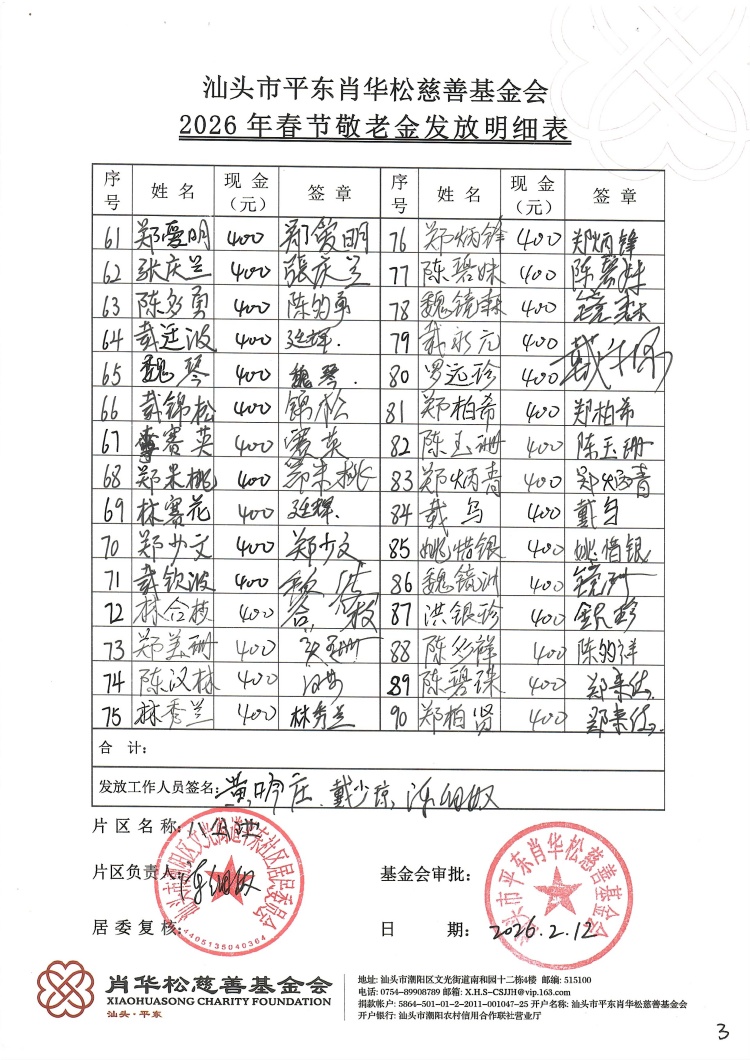 汕头市平东肖华松慈善基金会
2026年春节敬老金发放明细表
序号 姓名 现金（元） 签章 序号 姓名 现金（元） 签章
61 郑爱明 400 郑爱明 76 郑炳锋 400 郑炳锋
62 张庆兰 400 張庆兰 77 陈碧妹 400 陈碧妹
63 陈多勇 400 陈多勇 78 魏镜森 400 镜森
64 戴廷波 400 廷辉. 79 戴永元 400
65 魏琴 400 魏琴. 80 罗远珍 400
66 戴锦松 400 锦松 81 郑柏希 400 郑柏希
67 李赛英 400 赛英 82 陈玉珊 400 陈玉珊
68 郑来桃 400 郑来桃 83 郑炳青 400 郑炳青
69 林赛花 400 廷辉. 84 戴乌 400 戴乌
70 郑少文 400 郑少文 85 姚惜银 400 姚惜银
71 戴钦波 400 86 魏镜洲 400
72 林合枝 400 合枝 87 洪银珍 400 银珍
73 郑美珊 400 美珊 88 陈多祥 400 陈多祥
74 陈汉林 400 89 陈碧珠 400
75 林秀兰 400 林秀兰 90 郑柏贤 400
合 计：
发放工作人员签名：戴少琼
片区名称：
片区负责人：
基金会审批：
居委复核：
日 期：2026.2.12
汕头市潮阳区文光街道平东社区居民委员会
4405135040364
汕头市平东肖华松慈善基金会
肖华松慈善基金会
XIAOHUASONG CHARITY FOUNDATION
汕头·平东
地址: 汕头市潮阳区文光街道南和园十二栋4楼 邮编: 515100
电话: 0754-89908789 邮箱: X.H.S-CSJJH@vip.163.com
捐款帐户: 5864-501-01-2-2011-001047-25 开户名称: 汕头市平东肖华松慈善基金会
开户银行: 汕头市潮阳农村信用合作联社营业厅
3